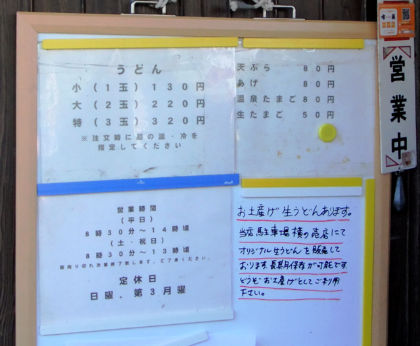 うどん
小(1玉)130円
大(2玉)220円
特(3玉)320円
※注文時に麺の温・冷を
指定してください
天ぷら 80円
あげ 80円
温泉たまご 80円
生たまご 50円
営業中
営業時間
(平日)
8時30分~14時
(土・祝日)
8時30分~13時
定休日
日曜、第3月曜
お土産げ生うどんあります。
当店駐車場横の売店にて
オリジナル生うどんを販売して
おります長期保存が可能です
どうぞお土産げとしてご利用
下さい。